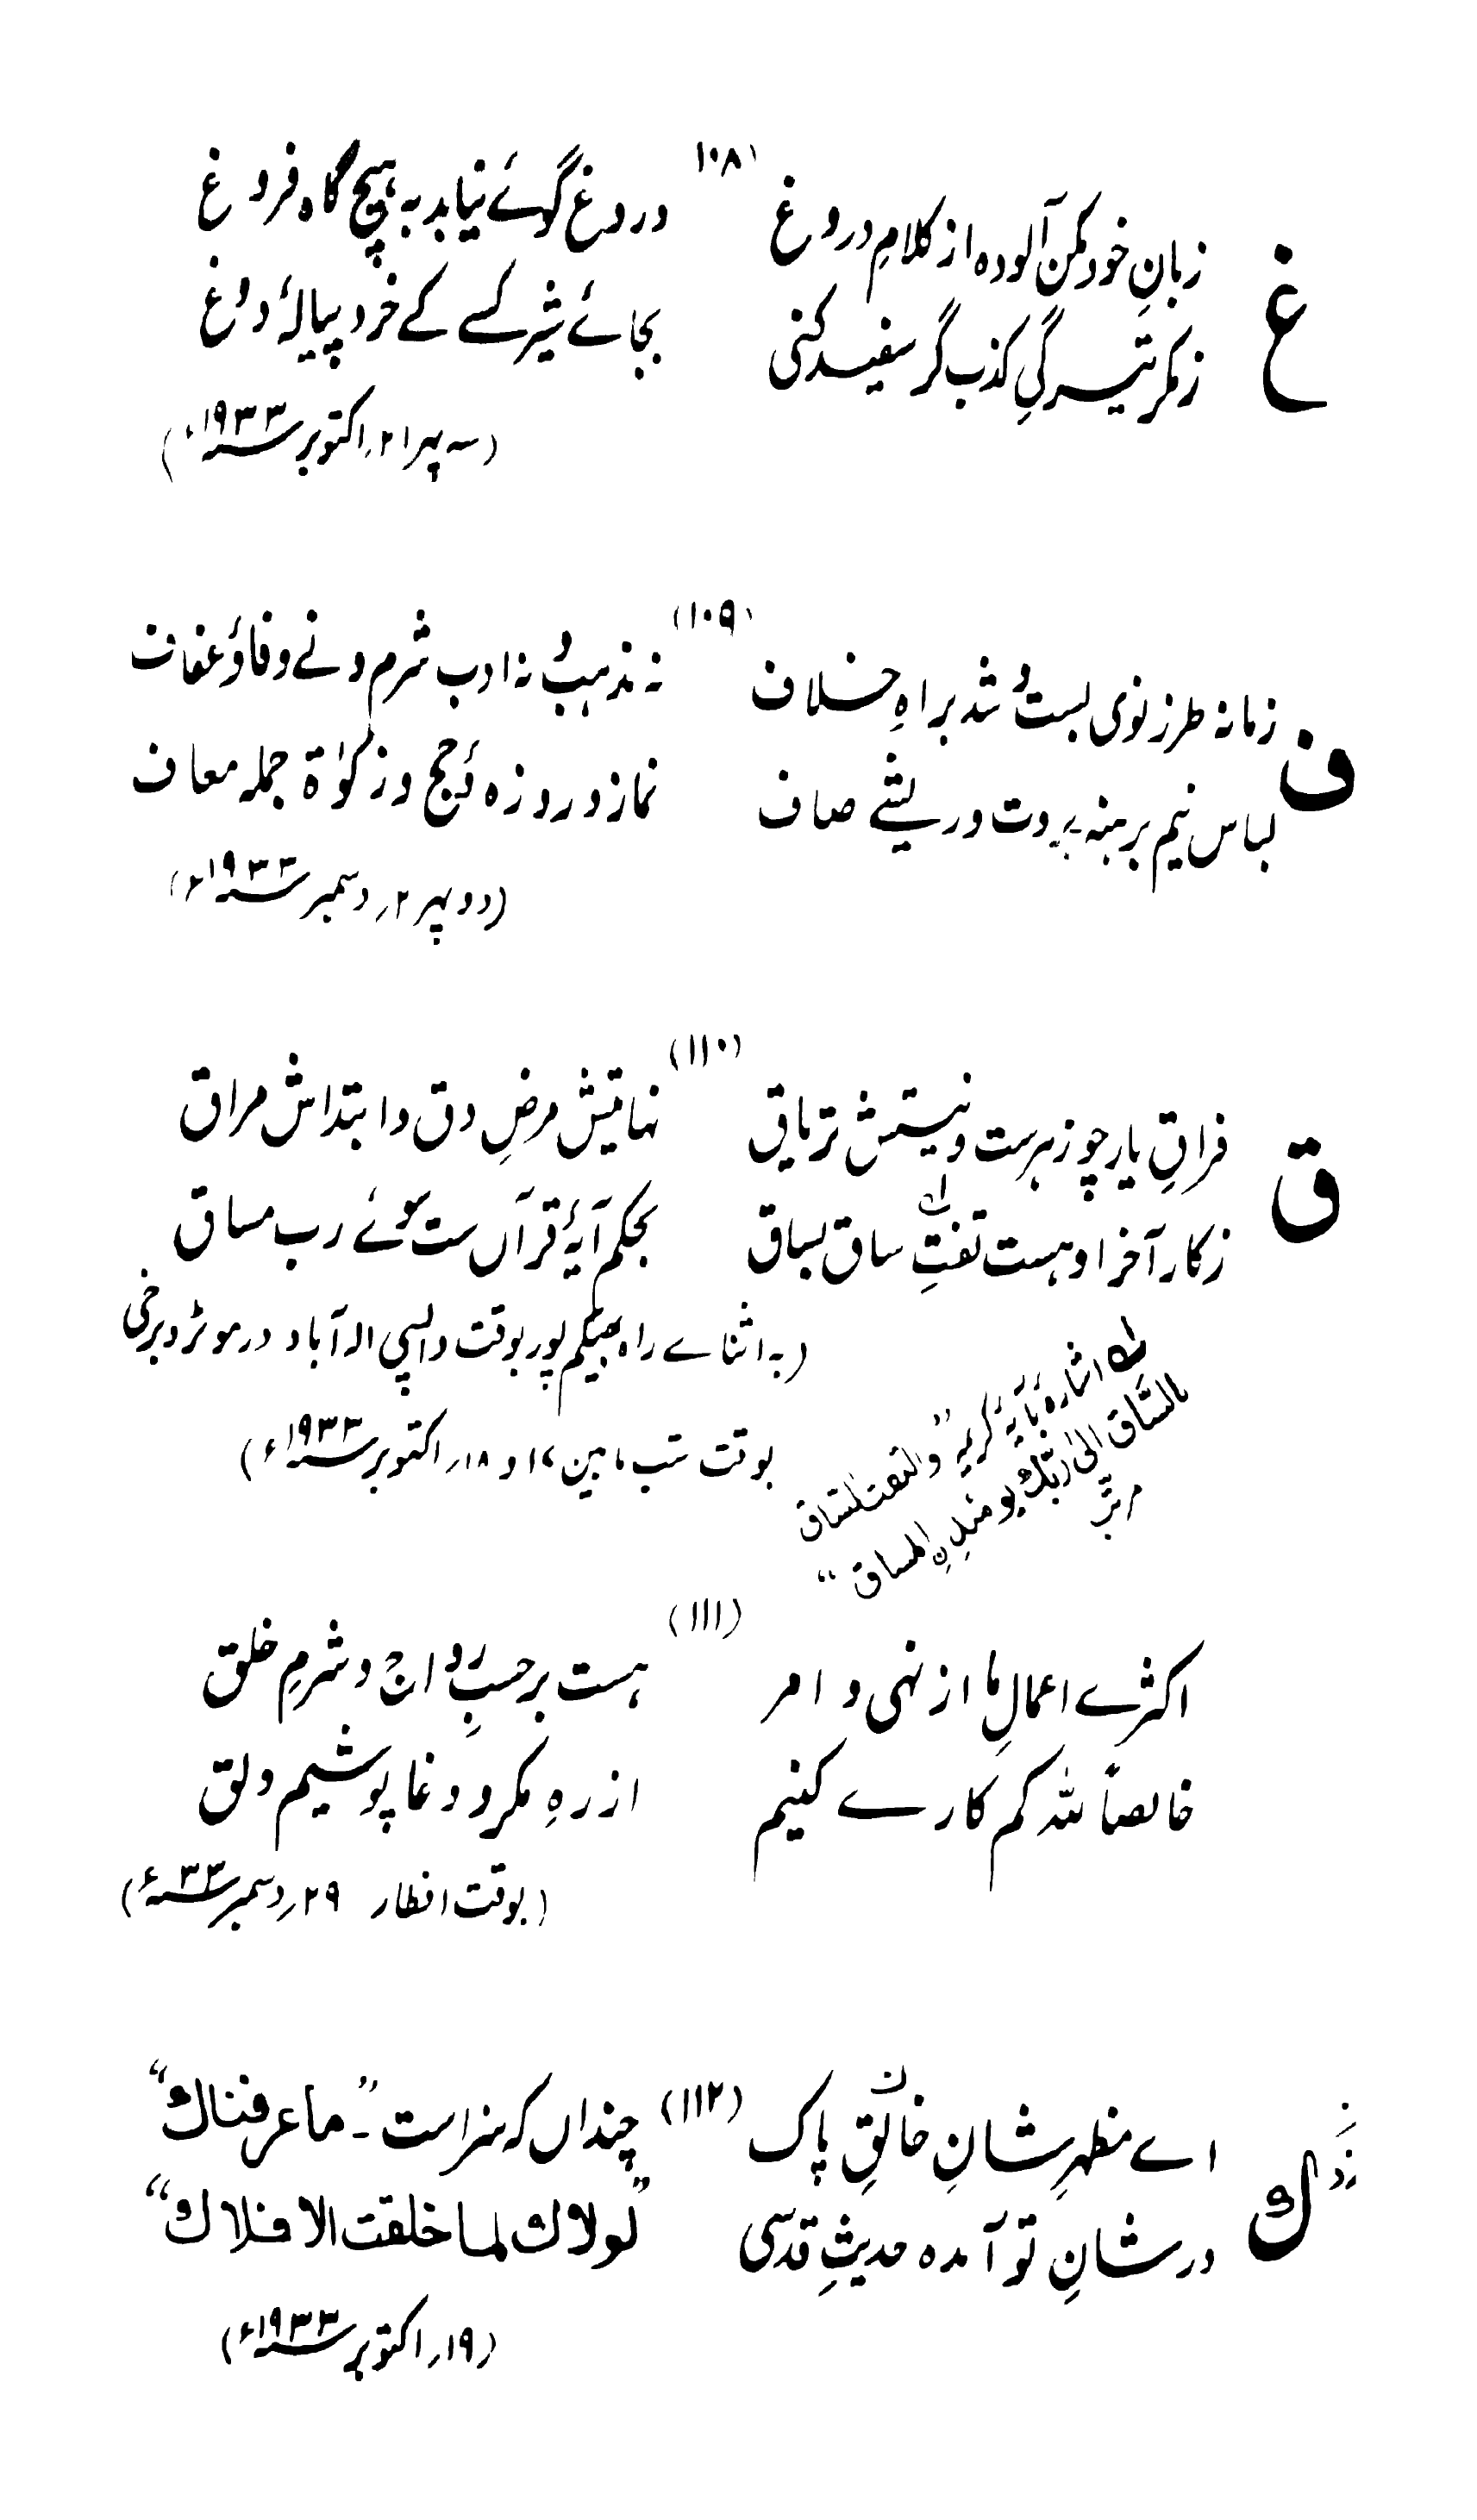 (۱۰۸)
غ
زبانِ خود مکن آلوده از کلامِ دروغ
دروغ گوئے نیابد بہ ہیچ گاہ فروغ
زمکر تیرگیِ کذب گر سفید کنی
بجائے شیر کسے کے خرد پیالۂ دوغ
(سہ پہر ۲۱؍ اکتوبر ۱۹۳۳ء)
(۱۰۹)
ف
زمانہ طرز نوی بست و شد براہِ خلاف
نہ مذہب و نہ ادب شرم و نے وفا و عفاف
لباس نیم برہنہ بروت و ریشے صاف
نماز و روزہ و حج و زکوٰۃ جملہ معاف
(دوپہر ۲؍ دسمبر ۱۹۳۳ء)
(۱۱۰)
ق
فراقِ یار چو زہرست و نیستش تریاق
نہایتش مرضِ دق و ابتداش مراق
زکار آخر او ہست لفتِ ساق بساق
بحکم آیۂ قرآں ست سوئے رب مساق
(بہ اثنائے راہ بھیکم پور بوقت واپسی الہ آباد در موٹر و برخی
بوقت شب، بین ۱۷ و ۱۸؍ اکتوبر ۱۹۳۳ء)
لہ اشارہ بآیۂ کریمہ "والتفت الساق
بالساق الی ربک یومئذِنِ المساق"
۱۲ اثر
(۱۱۱)
اکثرے اعمالِ ما از نہی و امر
ہست بر حسبِ رواج و شرمِ خلق
خالصاً للہ کم کارے کنیم
از رہِ مکر و دغا پوشیم دلق
(بوقت افطار ۲۹؍ دسمبر ۳۳ء)
(۱۱۲)
ک
اے مظہرِ شانِ خالقِ پاک
چنداں کہ سزا ست - "ماعرفناک"
در شانِ تو آمدہ حدیثِ قدسی
"لولاک لما خلقت الافلاک"
(۱۹؍ اکتوبر ۱۹۳۳ء)